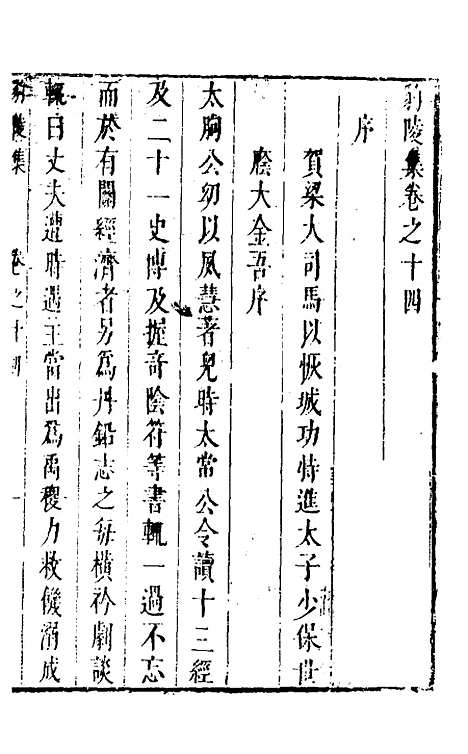 䔥陵集卷之十四
序
賀梁大司馬以恢城功特進太子少保世
廕大金吾序
太胸公幼以夙慧著兒時太常公令讀十三經
及二十一史博及握奇陰符等書輒一過不忘
而於有關經濟者另爲丹鉛志之每橫衿劇談
輒曰丈夫遭時遇王當出爲禹稷力救饑溺成
陵集
卷之十四
一